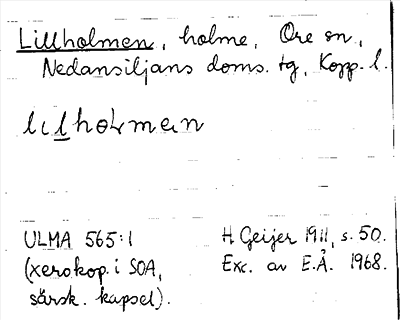 Lillholmen, holme, Ore sn,
Nedansiljans doms. tg, Kopp. l.
lıl̲hoɫmeın
ULMA 565:1
(xerokop. i SOA,
särsk. kapsel).
H Geijer 1911, s. 50.
Exc. av E.Å. 1968.